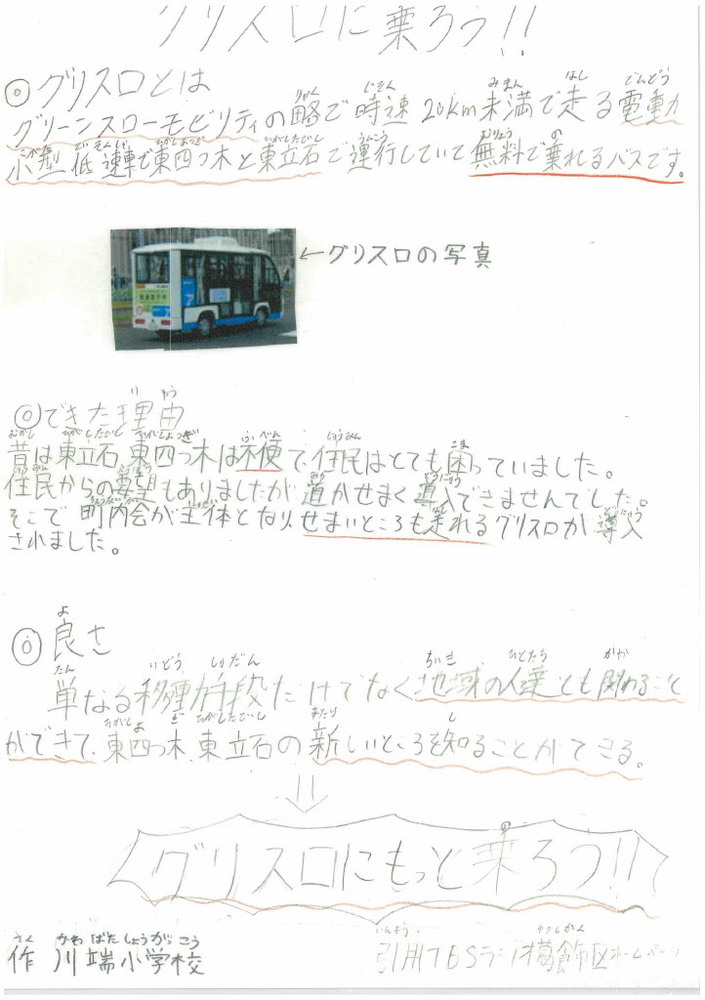 グリスロに乗ろう!!
◎グリスロとは
グリーンスローモビリティの略で時速20km未満で走る電動
小型低速車で東四つ木と東立石で運行していて無料で乗れるバスです。
←グリスロの写真
◎できた理由
昔は東立石、東四つ木は不便で、住民はとても困っていました。
住民からの要望もありましたが道がせまく導入できませんでした。
そこで町内会が主体となり、せまいところも走れるグリスロが導入
されました。
◎良さ
単なる移動手段だけでなく地域の人達とも関わること
ができて、東四つ木、東立石の新しいところを知ることができる。
グリスロにもっと乗ろう!!
作 川端小学校
引用TBSラジオ葛飾区ホームページ